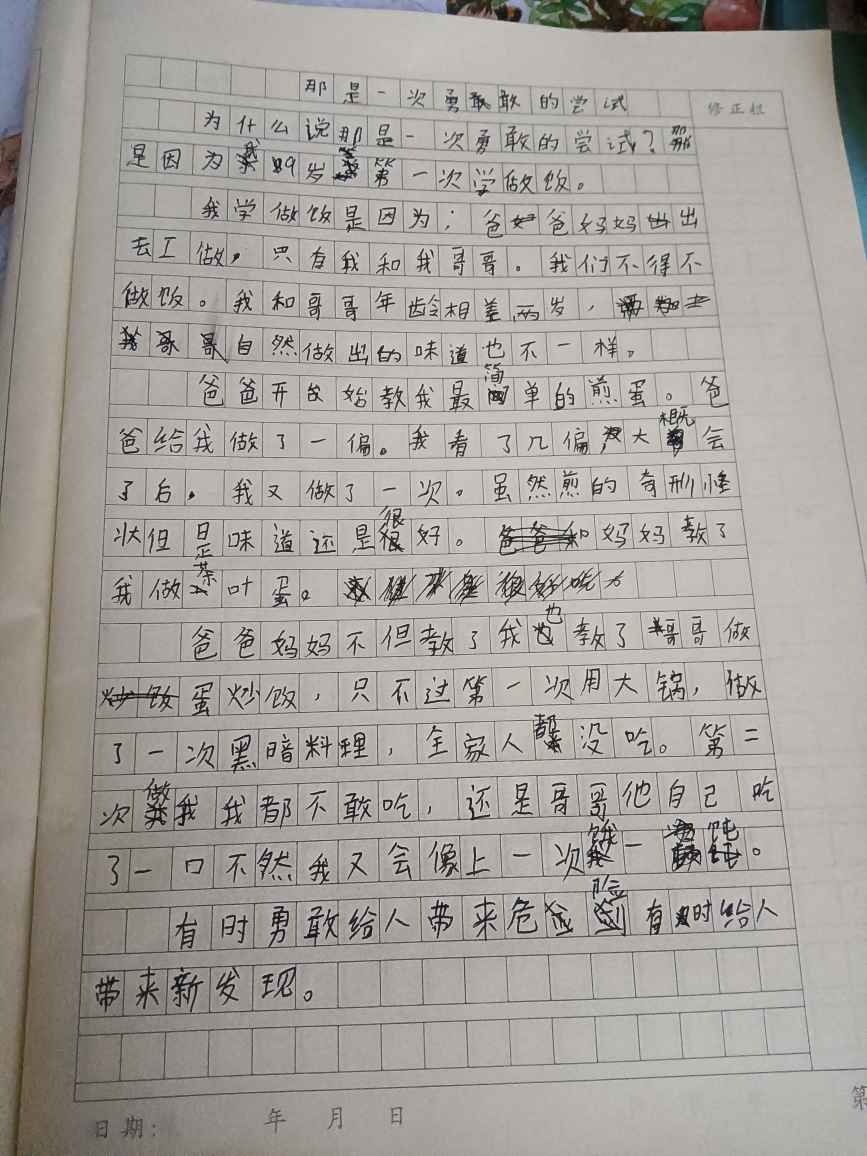 那是一次勇敢敢的尝试
修正栏
为什么说那是一次勇敢的尝试？那
是因为我9岁第一次学做饭。
我学做饭是因为：爸爸妈妈出
去工做，只有我和我哥哥。我们不得不
做饭。我和哥哥年龄相差两岁，
我哥哥自然做出的味道也不一样。
爸爸开始教我最简单的煎蛋。爸
爸给我做了一偏。我看了几偏，大概会
了后，我又做了一次。虽然煎的奇形怪
状但是味道还是很好。妈妈教了
我做茶叶蛋。
爸爸妈妈不但教了我也教了哥哥做
蛋炒饭，只不过第一次用大锅，做
了一次黑暗料理，全家人都没吃。第二
次做我我都不敢吃，还是哥哥他自己吃
了一口不然我又会像上一次饿一饨。
有时勇敢给人带来危险有时给人
带来新发现。
日期： 年 月 日
第